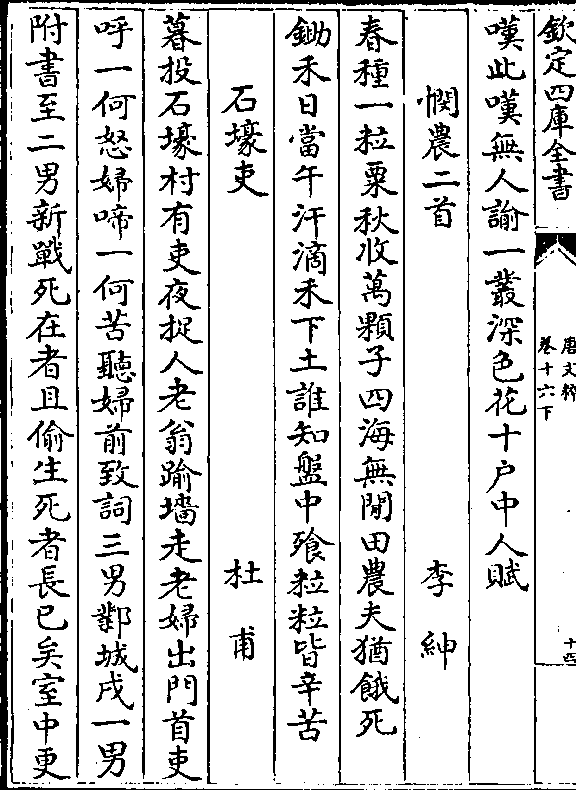 欽定四庫全書
唐文粹
卷十六下
十四
嘆此嘆無人諭一叢深色花十户中人賦
憫農二首 李紳
春種一粒粟秋收萬顆子四海無閒田農夫猶餓死
鋤禾日當午汗滴禾下土誰知盤中飱粒粒皆辛苦
石壕吏 杜甫
暮投石壕村有吏夜捉人老翁踰墻走老婦出門首吏
呼一何怒婦啼一何苦聽婦前致詞三男鄴城戍一男
附書至二男新戰死在者且偷生死者長已矣室中更